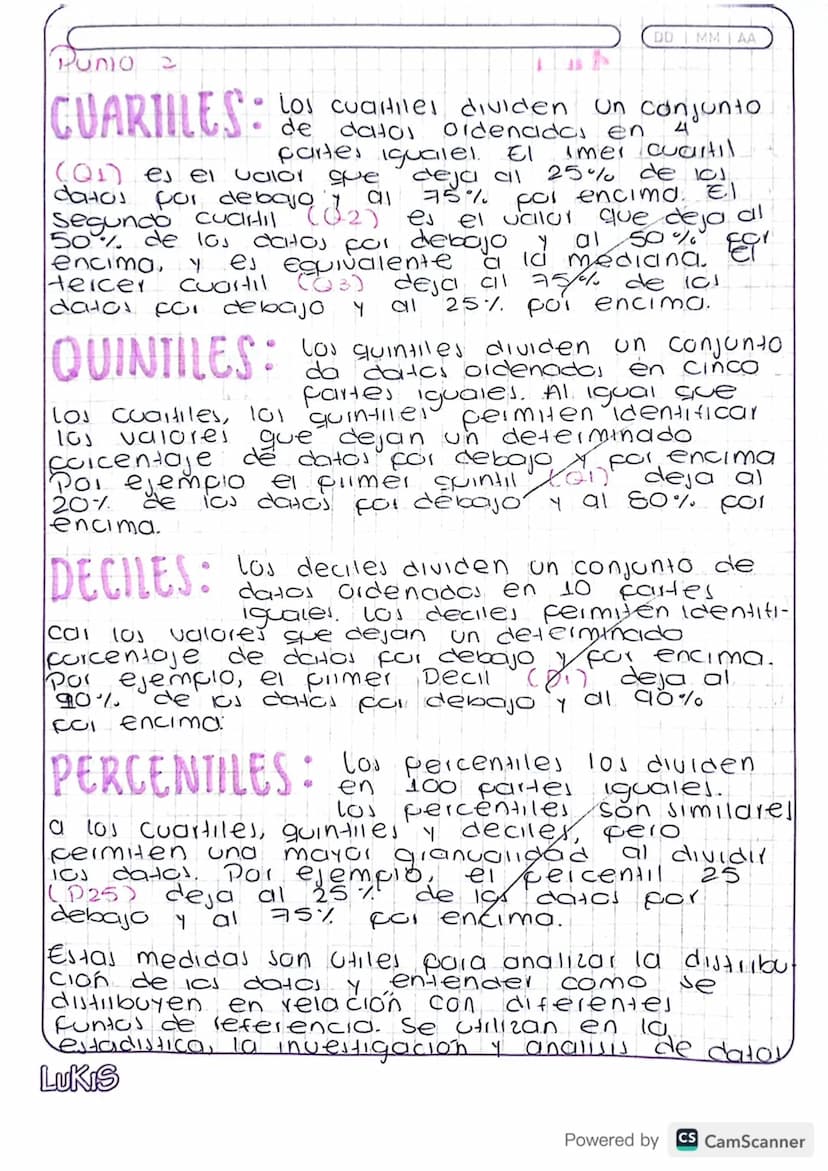 DD | MM | AA
Punto 2
CUARTILES: Los cuartiles dividen un conjunto
de datos ordenados en 4
partes iguales. El 1mer cuartil
(Q1) es el valor que deja al 25% de los
datos por debajo y al 75% por encima. El
segundo cuartil (Q2) es el valor que deja al
50% de los datos por debajo y al 50% por
encima, y es equivalente a la mediana. El
tercer cuartil (Q3) deja al 75% de los
datos por debajo y al 25% por encima.
QUINTILES: Los quintiles dividen un conjunto
da datos ordenados en cinco
partes iguales. Al igual que
los cuartiles, los quintiles permiten identificar
los valores que dejan un determinado
porcentaje de datos por debajo y por encima
Por ejemplo el primer quintil (Q1) deja al
20% de los datos por debajo y al 80% por
encima.
DECILES: Los deciles dividen un conjunto de
datos ordenados en 10 partes
iguales. Los deciles permiten identifi-
car los valores que dejan un determinado
porcentaje de datos por debajo y por encima.
Por ejemplo, el primer Decil (D1) deja al
90% de los datos por debajo y al 90%
por encima.
PERCENTILES: Los percentiles los dividen
en 100 partes iguales.
Los percentiles son similares
a los cuartiles, quintiles y deciles, pero
permiten una mayor granualidad al dividir
los datos. Por ejemplo, el percentil 25
(P25) deja al 25% de los datos por
debajo y al 75% por encima.
Estas medidas son utiles para analizar la distribu-
ción de los datos y entender como se
distribuyen en relación con diferentes
puntos de referencia. Se utilizan en la
estadistica, la investigación y analisis de datos
LUKIS
Powered by CS CamScanner